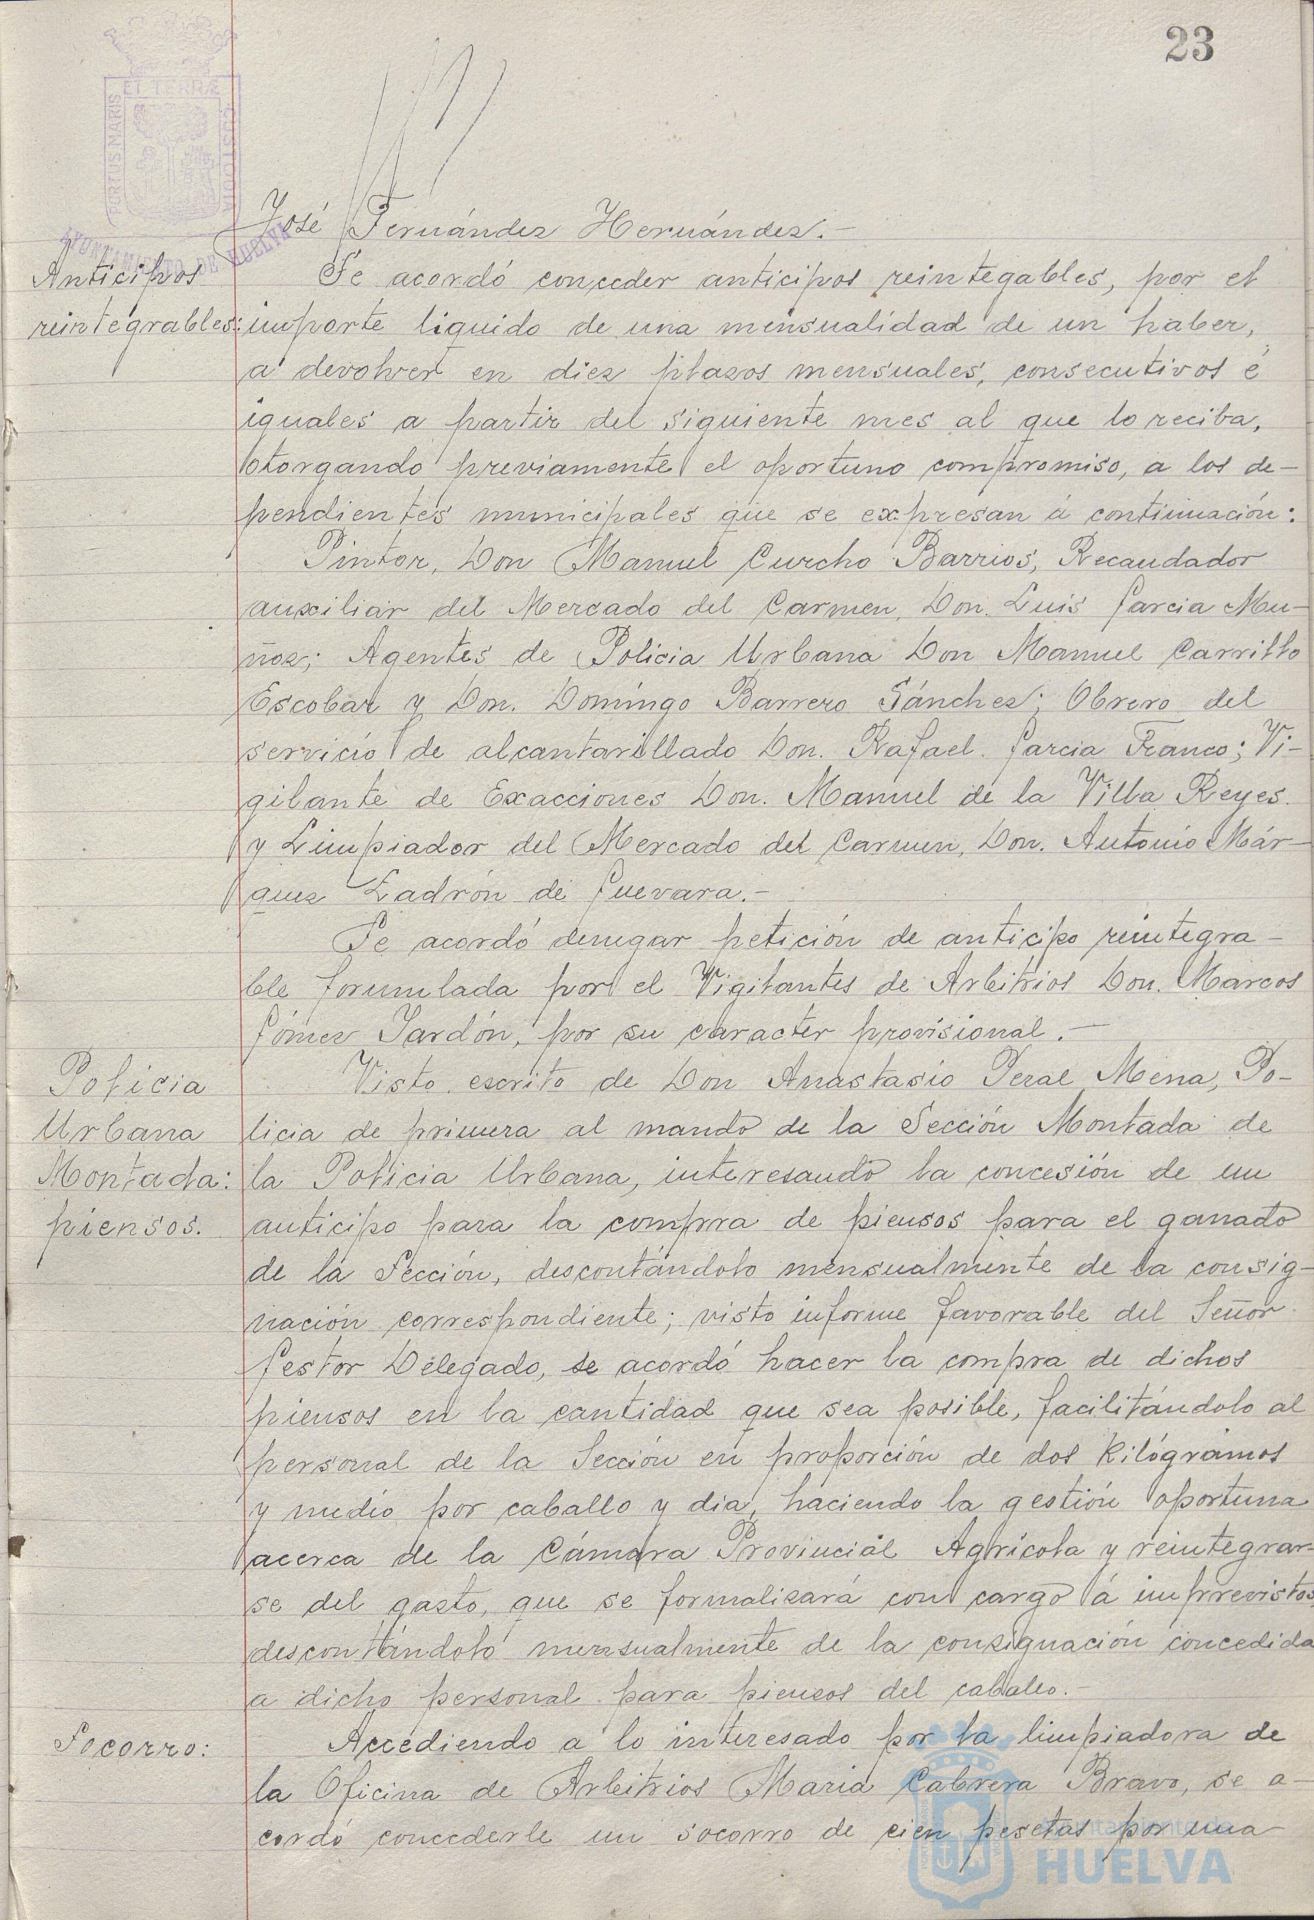 23
PORTUS MARIS
ET TERRÆ
CUSTODIA
AYUNTAMIENTO DE HUELVA
José Fernández Hernández.-
Anticipos
reintegrables:
Se acordó conceder anticipos reintegables, por el
importe líquido de una mensualidad de un haber,
a devolver en diez plazos mensuales, consecutivos é
iguales a partir del siguiente mes al que lo reciba,
otorgando previamente el oportuno compromiso, a los de-
pendientes municipales que se expresan á continuación:
Pintor, Don Manuel Curcho Barrios, Recaudador
auxiliar del Mercado del Carmen, Don. Luis Garcia Mu-
ñoz; Agentes de Policia Urbana Don Manuel Carrillo
Escobar y Don. Domíngo Barrero Sánchez; Obrero del
servicio de alcantarillado Don. Rafael Garcia Franco; Vi-
gilante de Exacciones Don. Manuel de la Villa Reyes.
y Limpiador del Mercado del Carmen, Don. Antonio Már-
quez Ladrón de Guevara.-
Se acordó denegar petición de anticipo reintegra-
ble formulada por el Vigilantes de Arbitrios Don. Marcos
Gómez Jardón, por su caracter provisional.-
Policia
Urbana
Montada:
piensos.
Visto escrito de Don Anastasio Peral Mena, Po-
licia de primera al mando de la Sección Montada de
la Policia Urbana, interesando la concesión de un
anticipo para la compra de piensos para el ganado
de la Sección, descontándolo mensualmente de la consig-
nación correspondiente; visto informe favorable del Señor
Gestor Delegado, se acordó hacer la compra de dichos
piensos en la cantidad que sea posible, facilitándolo al
personal de la Sección en proporción de dos kilógramos
y medio por caballo y dia, haciendo la gestión oportuna
acerca de la Cámara Provincial Agrícola y reintegrar-
se del gasto, que se formalizará con cargo á imprevistos,
descontándolo mensualmente de la consignación concedida
a dicho personal para piensos del caballo.-
Socorro:
Accediendo a lo interesado por la limpiadora de
la Oficina de Arbitrios Maria Cabrera Bravo, se a-
cordó concederle un socorro de cien pesetas por una
Ayuntamiento de
HUELVA